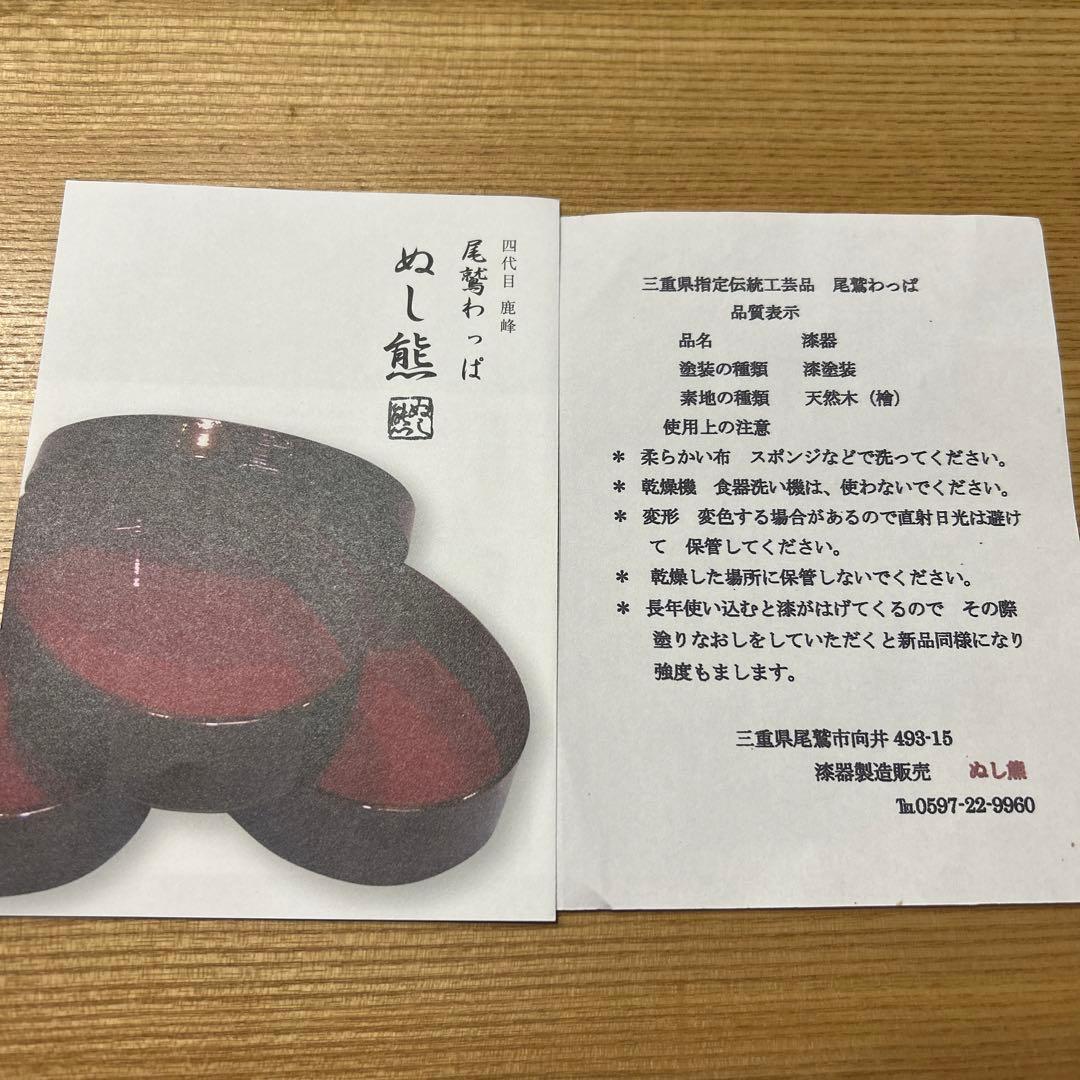 四代目 鹿峰
尾鷲わっぱ
ぬし熊
三重県指定伝統工芸品 尾鷲わっぱ
品質表示
品名 漆器
塗装の種類 漆塗装
素地の種類 天然木（檜）
使用上の注意
＊ 柔らかい布 スポンジなどで洗ってください。
＊ 乾燥機 食器洗い機は、使わないでください。
＊ 変形 変色する場合があるので直射日光は避け
て 保管してください。
＊ 乾燥した場所に保管しないでください。
＊ 長年使い込むと漆がはげてくるので その際
塗りなおしをしていただくと新品同様になり
強度もまします。
三重県尾鷲市向井 493-15
漆器製造販売 ぬし熊
℡0597-22-9960